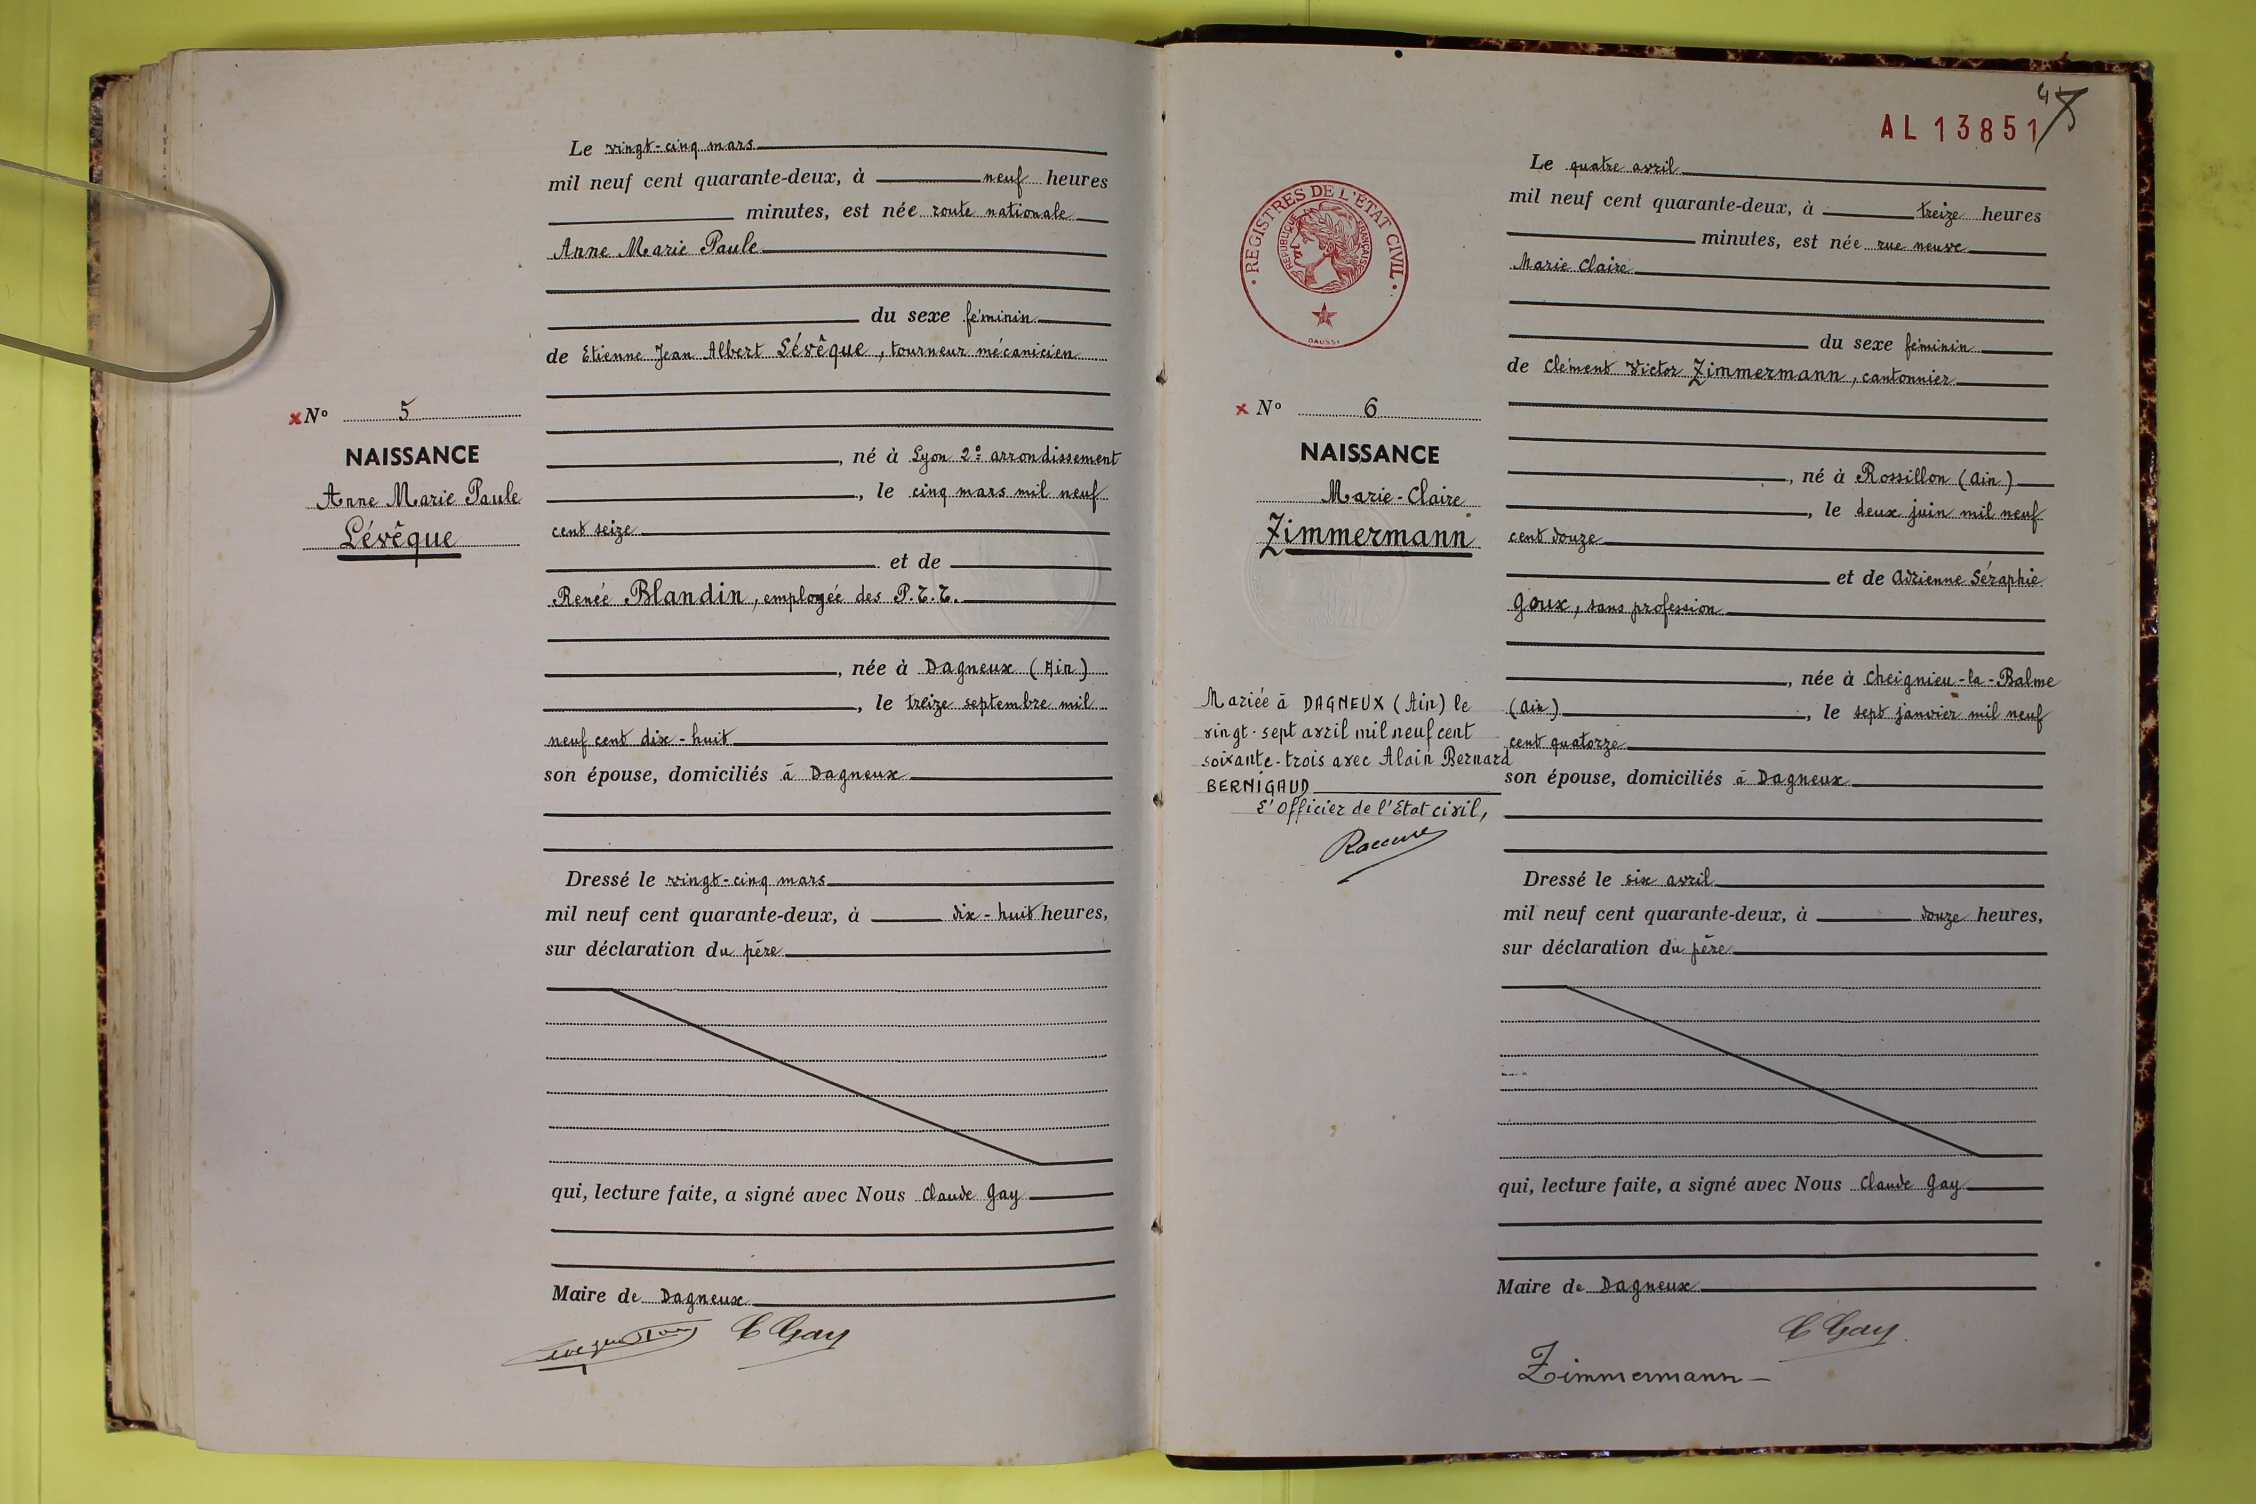 Le vingt-cinq mars
mil neuf cent quarante-deux, à neuf heures
minutes, est née route nationale
Anne Marie Paule
du sexe féminin
de Etienne Jean Albert Lévêque, tourneur mécanicien
× Nº 5
NAISSANCE
Anne Marie Paule
Lévêque
, né à Lyon 2e arrondissement
, le cinq mars mil neuf
cent seize
et de
Renée Blandin, employée des P.T.T.
, née à Dagneux (Ain)
, le treize septembre mil
neuf cent dix-huit
son épouse, domiciliés à Dagneux
Dressé le vingt-cinq mars
mil neuf cent quarante-deux, à dix-huit heures,
sur déclaration du père
qui, lecture faite, a signé avec Nous Claude Gay
Maire de Dagneux
C Gay
AL 13851
REGISTRES DE L'ÉTAT CIVIL
RÉPUBLIQUE FRANÇAISE
DAUSSY
Le quatre avril
mil neuf cent quarante-deux, à treize heures
minutes, est née rue neuve
Marie Claire
du sexe féminin
de Clément Victor Zimmermann, cantonnier
× Nº 6
NAISSANCE
Marie-Claire
Zimmermann
, né à Rossillon (Ain)
, le deux juin mil neuf
cent douze
et de Adrienne Séraphie
Goux, sans profession
, née à Cheignieu-la-Balme
(Ain) , le sept janvier mil neuf
cent quatorze
son épouse, domiciliés à Dagneux
Mariée à DAGNEUX (Ain) le
vingt-sept avril mil neuf cent
soixante-trois avec Alain Bernard
BERNIGAUD
L'Officier de l'Etat civil,
Dressé le six avril
mil neuf cent quarante-deux, à douze heures,
sur déclaration du père
qui, lecture faite, a signé avec Nous Claude Gay
Maire de Dagneux
C Gay
Zimmermann